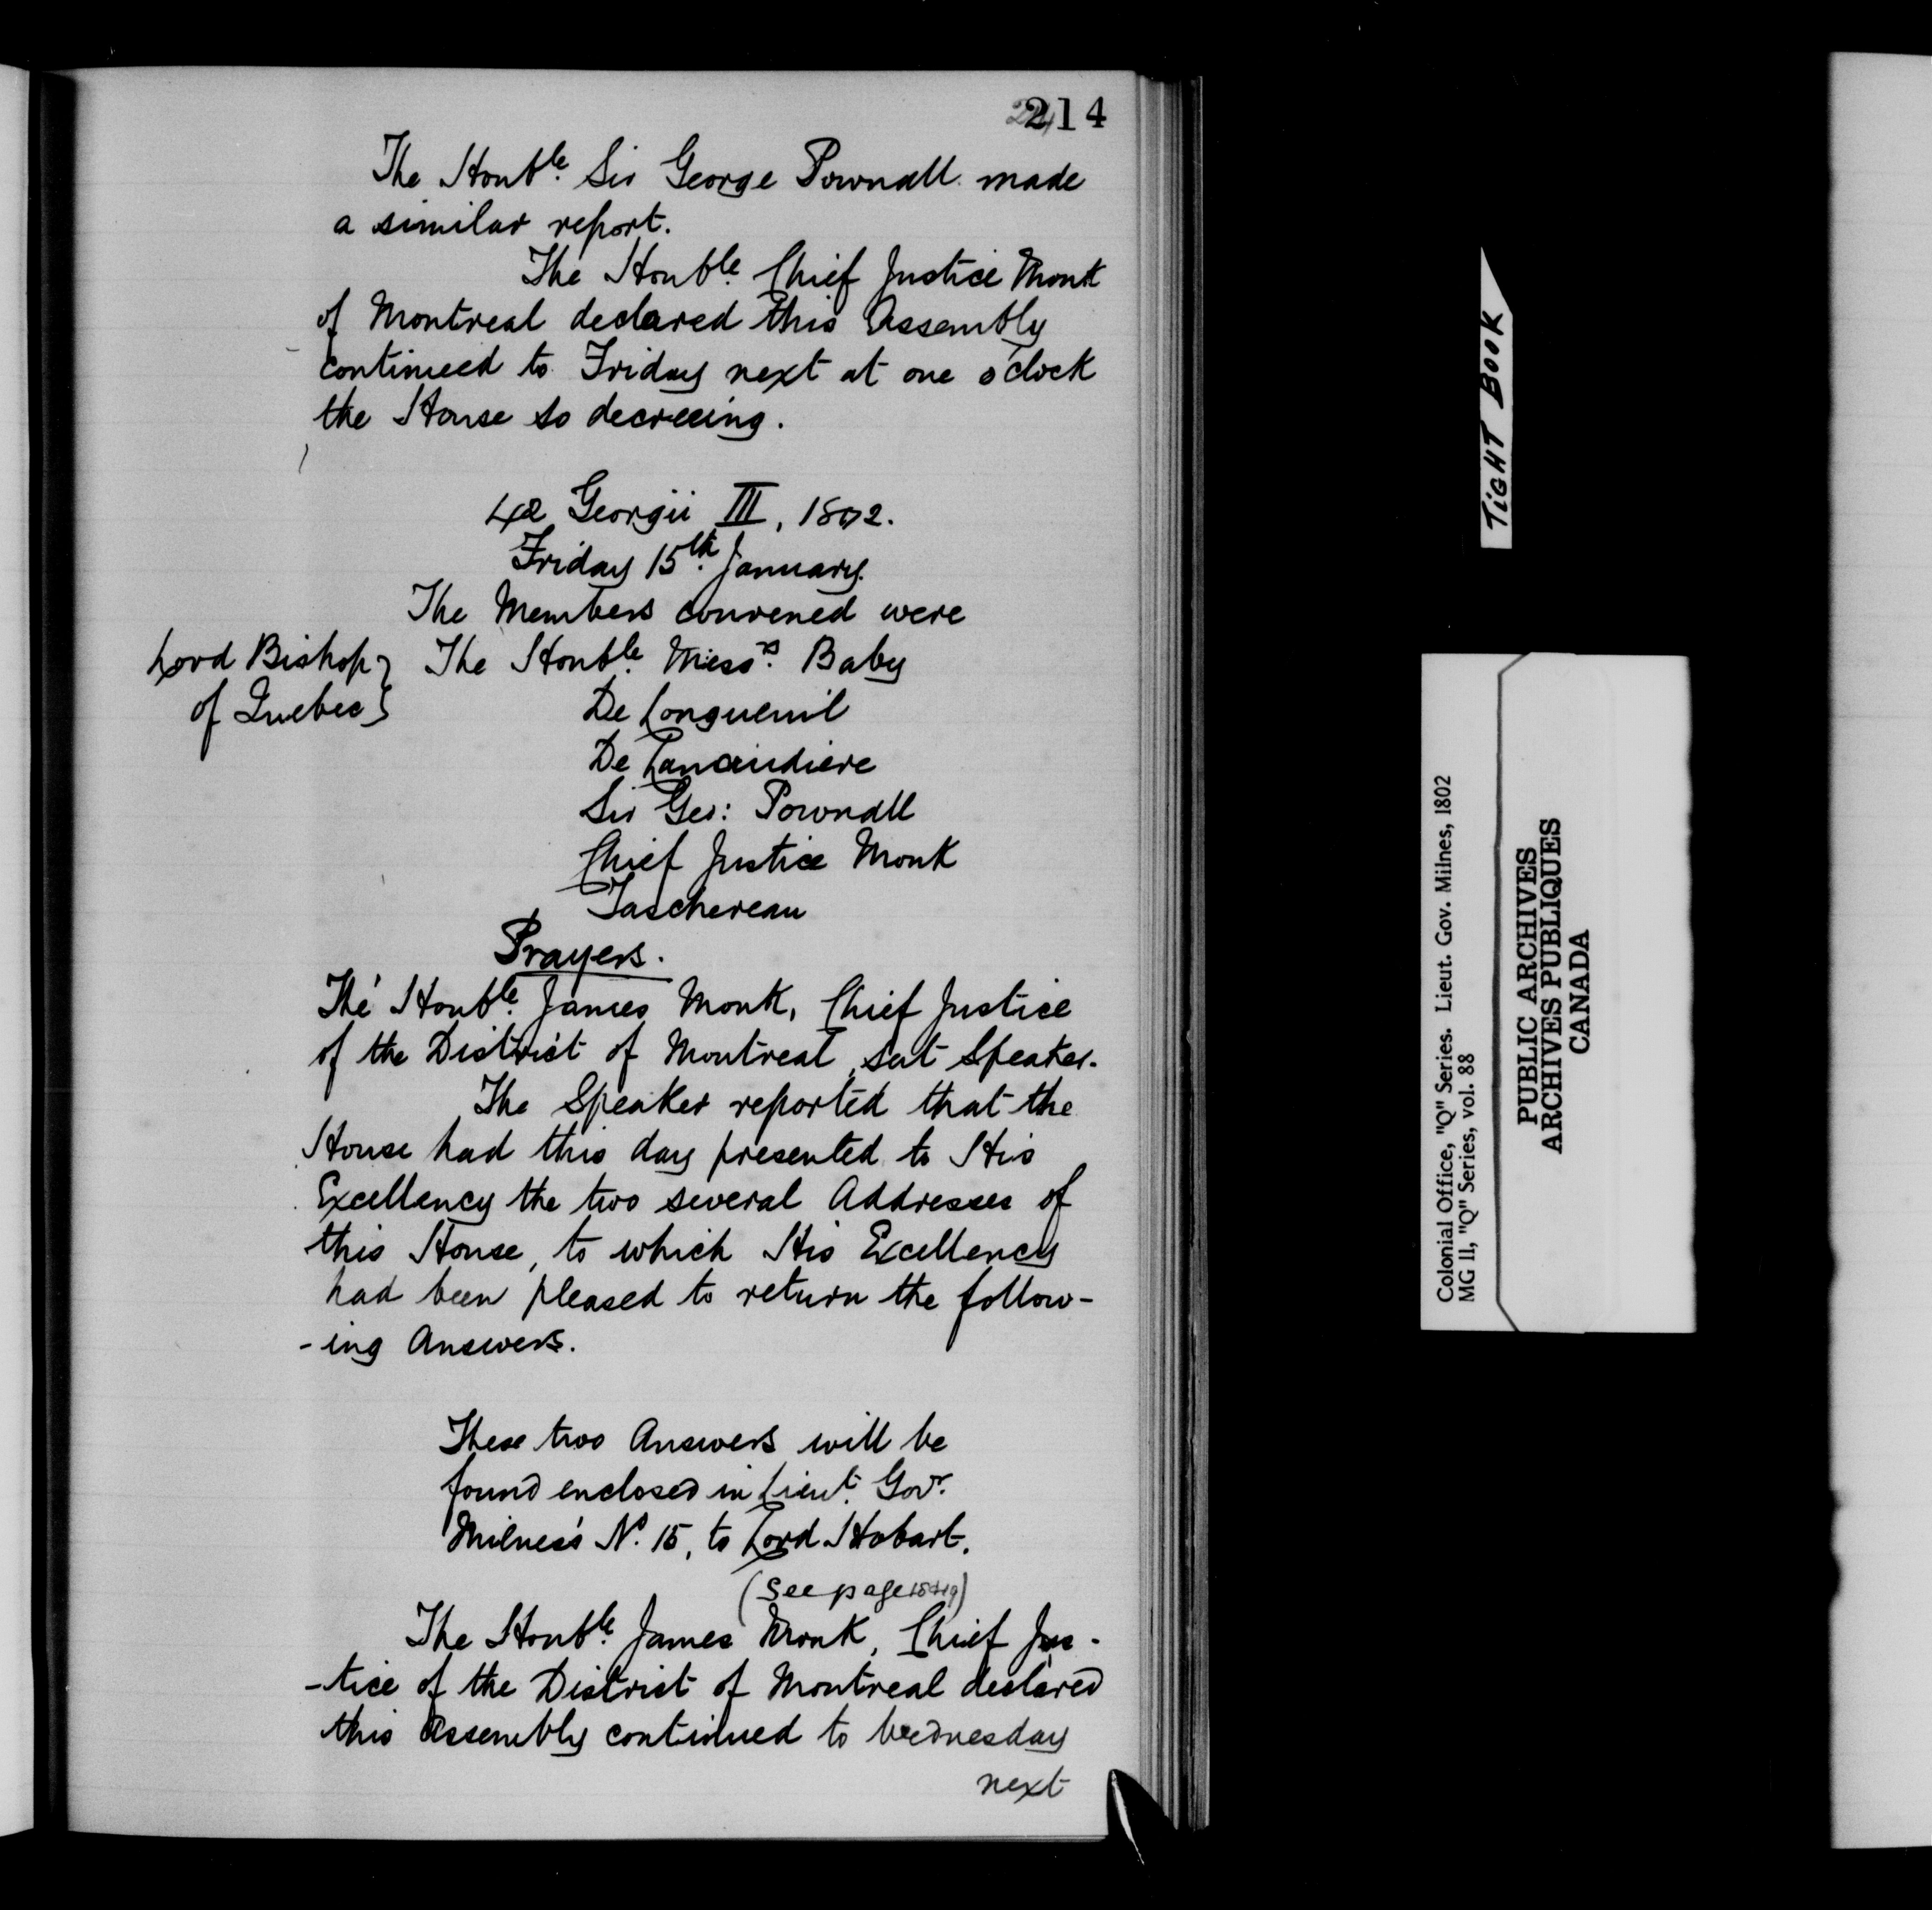 214
The Honble. Sir George Pownall made
a similar report.
The Honble. Chief Justice Monk
of Montreal declared this Assembly
continued to Friday next at one o'clock
the House so decreeing.
42 Georgii III, 1802.
Friday 15th. January.
The Members convened were
Lord Bishop } The Honble. Messrs. Baby
of Quebec }
De Longueuil
De Lanaudiere
Sir Geo: Pownall
Chief Justice Monk
Taschereau
Prayers.
The Honble. James Monk, Chief Justice
of the District of Montreal, sat Speaker.
The Speaker reported that the
House had this day presented to His
Excellency the two several Addresses of
this House, to which His Excellency
had been pleased to return the follow-
-ing Answers.
These two Answers will be
found enclosed in Lieut. Govr.
Milnes's No. 15, to Lord Hobart.
(See page
The Honble. James Monk, Chief Jus-
-tice of the District of Montreal declared
this Assembly continued to Wednesday
next
TIGHT BOOK
Colonial Office, "Q" Series. Lieut. Gov. Milnes, 1802
MG II, "Q" Series, vol. 88
PUBLIC ARCHIVES
ARCHIVES PUBLIQUES
CANADA